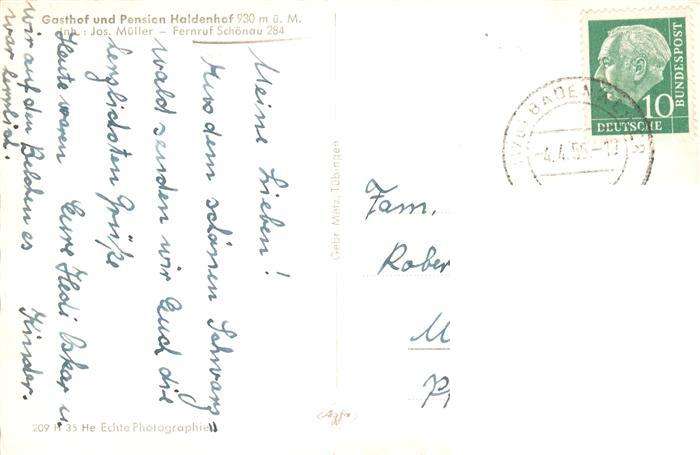 Gasthof und Pension Haldenhof 930 m ü. M.
Inh.: Jos. Müller – Fernruf Schönau 284
Meine Lieben!
Aus dem schönen Schwarz=
wald senden wir Euch die
herzlichsten Grüße
Eure Hedi Oskar u.
Kinder.
Heute waren
wir auf den Belchen es
war herrlich.
209 H 35 He Echte Photographie
Gebr. Metz, Tübingen
DEUTSCHE
BUNDESPOST
10
BADEN
-4.4.
Fam.
Rober
M